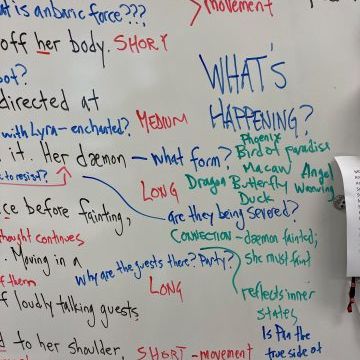 at is anbaric force???
movement
off her body. SHORT
WHAT'S
HAPPENING?
bot?
directed at
with Lyra - enchanted?
MEDIUM
Phoenix
Bird of paradise
it. Her dæmon - what form?
Macaw Angel
to resist?
Dragon Butterfly Weaving
LONG
Duck
are they being severed?
ce before fainting,
thought continues
CONNECTION - daemon fainted;
she must faint
. Moving in a
why are the guests there? Party?
of them
LONG
reflects inner
states
f loudly talking guests
Is Pan the
true side of
d to her shoulder,
SHORT - movement